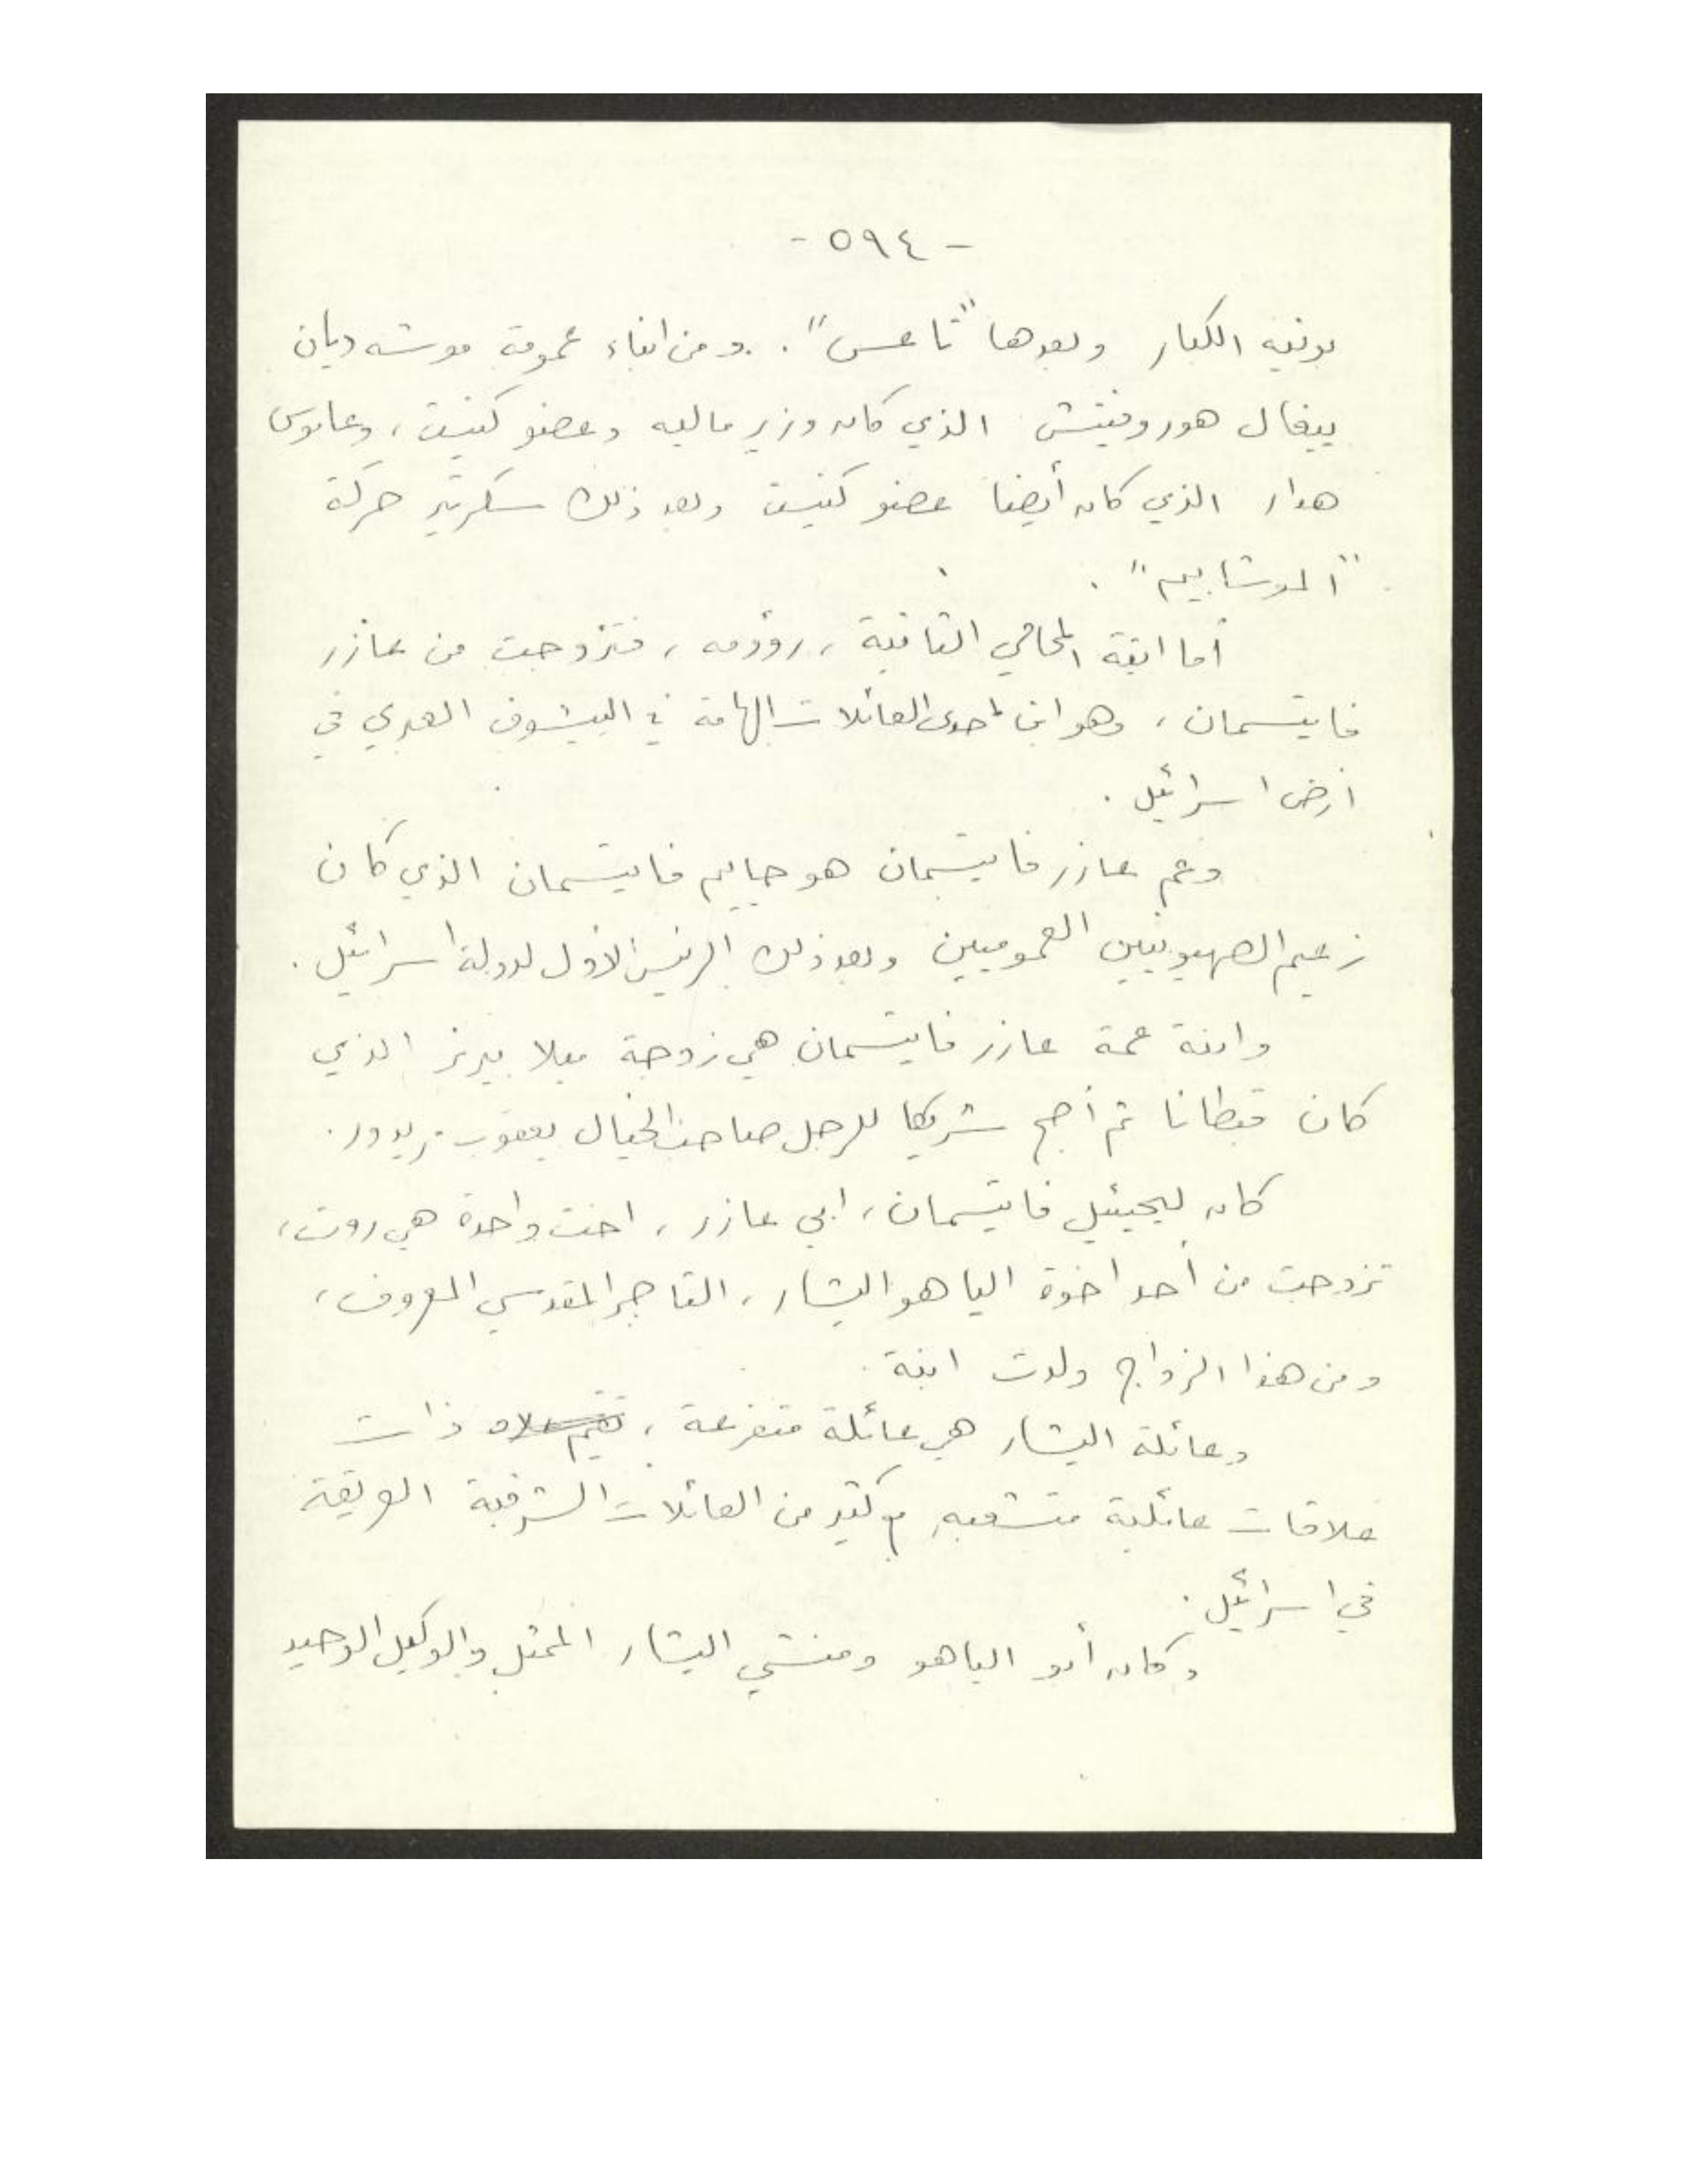 - ٥٩٤ -
بونيه الكبار وبعدها "تاعس". ومن ابناء عمومة موشه ديان
ييغال هوروفيتش الذي كان وزير ماليه وعضو كنيست، وعاموس
هدار الذي كان أيضا عضو كنيست وبعد ذلك سكرتير حركة
"الموشابيم".
أما ابنة المحامي الثانية، رؤومه، فتزوجت من عازر
فايتسمان، وهو ابن احدى العائلات الهامة في الييشوف العبري في
أرض اسرائيل.
وعم عازر فايتسمان هو حاييم فايتسمان الذي كان
زعيم الصهيونيين العموميين وبعد ذلك الرئيس الأول لدولة اسرائيل.
وابنة عمة عازر فايتسمان هي زوجة ميلا بيرنر الذي
كان قبطانا ثم أصبح شريكا للرجل صاحب الخيال يعقوب مريدور.
كان ليحيئيل فايتسمان، ابي عازر، اخت واحدة هي روت،
تزوجت من أحد اخوة الياهو اليشار، التاجر المقدسي المعروف،
ومن هذا الزواج ولدت ابنة.
وعائلة اليشار هي عائلة متفرعة، ذات
علاقات عائلية متشعبه مع كثير من العائلات الشرقية العريقة
في اسرائيل.
وكان أبو الياهو ومنشي اليشار الممثل والوكيل الوحيد